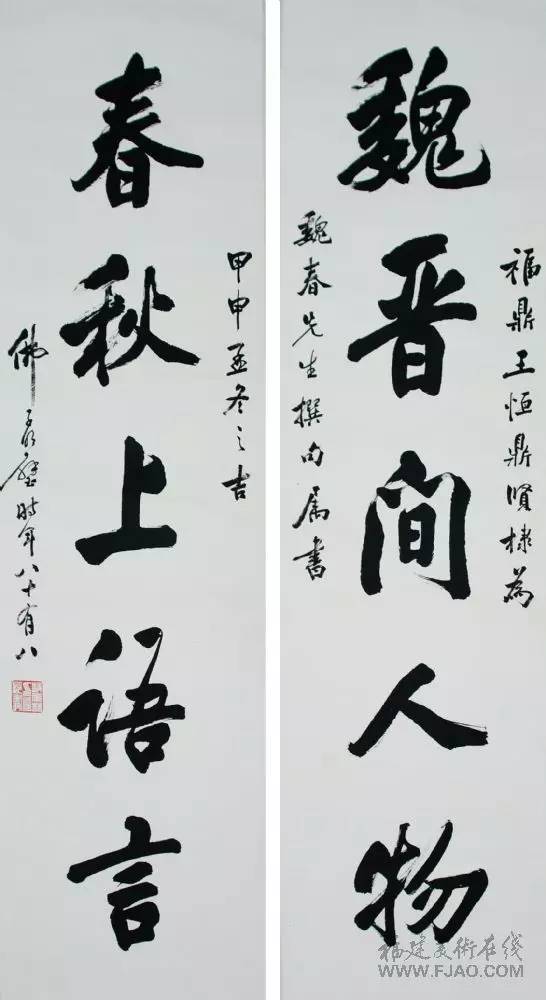 福鼎王恒鼎贤棣為
魏晋间人物
魏春先生撰句属書
甲申孟冬之吉
春秋上语言
佛 时年八十有八
福建美術在线
WWW.FJAO.COM